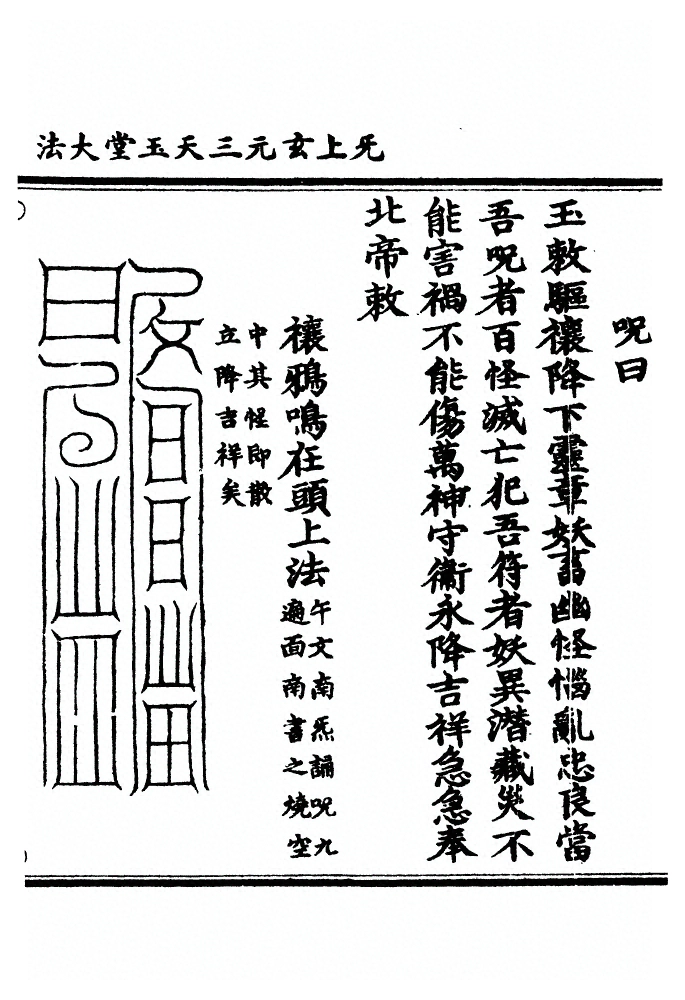 无上玄元三天玉堂大法
呪曰
玉敕驅禳降下靈章妖畜幽怪惱亂忠良當
吾呪者百怪滅亡犯吾符者妖異潛藏災不
能害禍不能傷萬神守衞永降吉祥急急奉
北帝敕
禳鴉鳴在頭上法
午文南炁誦呪九
遍面南書之燒空
中其怪即散
立降吉祥矣